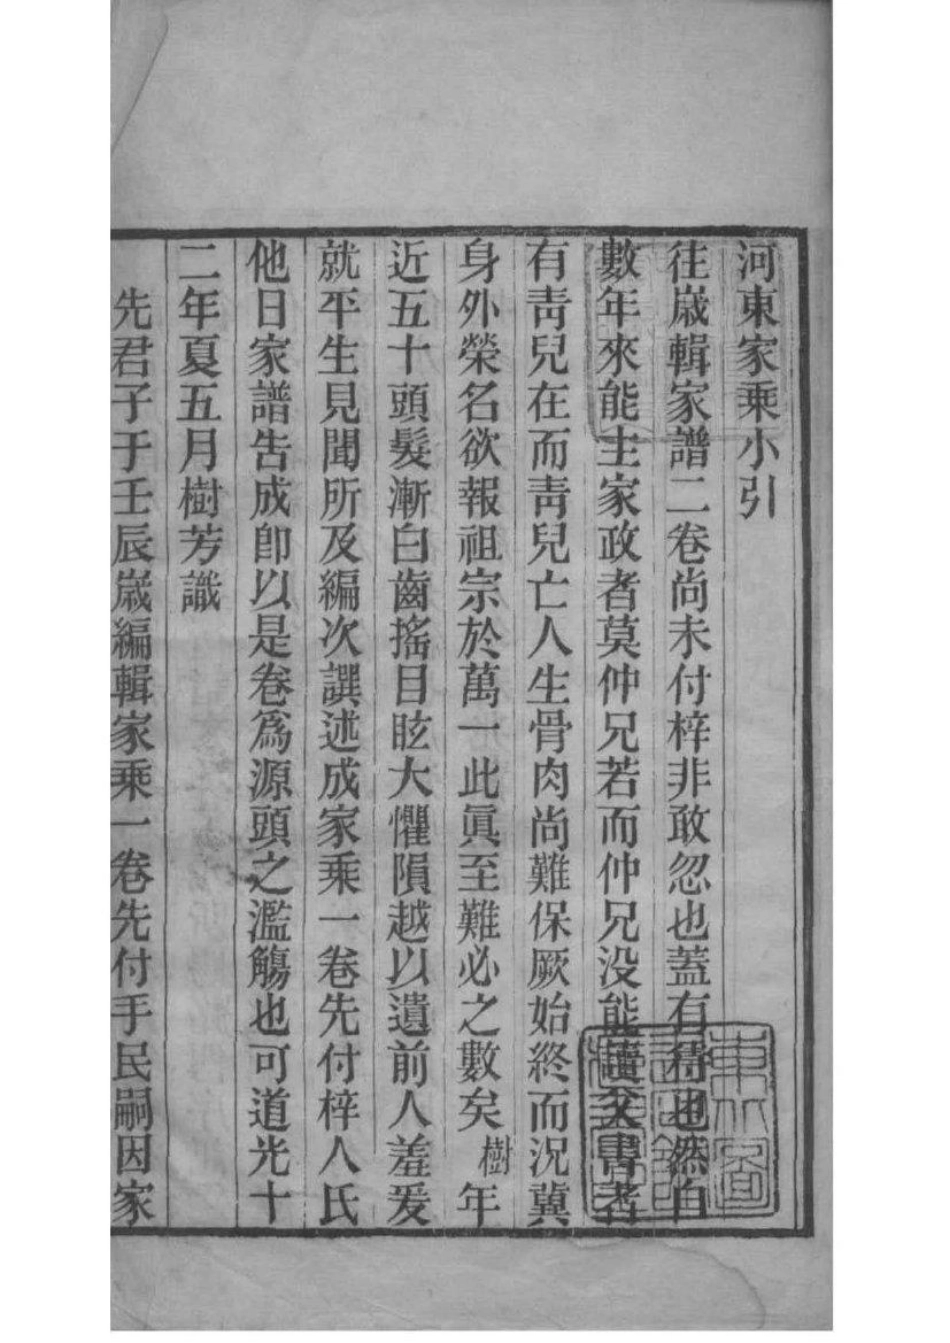 河東家乘小引
往嵗輯家譜二卷尚未付梓非敢忽也蓋有待也然自
數年來能主家政者莫仲兄若而仲兄没能讀父書者
有靑兒在而靑兒亡人生骨肉尚難保厥始終而況冀
身外榮名欲報祖宗於萬一此眞至難必之數矣樹年
近五十頭髮漸白齒搖目眩大懼隕越以遺前人羞爰
就平生見聞所及編次譔述成家乘一卷先付梓人氏
他日家譜告成卽以是卷爲源頭之濫觴也可道光十
二年夏五月樹芳識
先君子于壬辰嵗編輯家乘一卷先付手民嗣因家